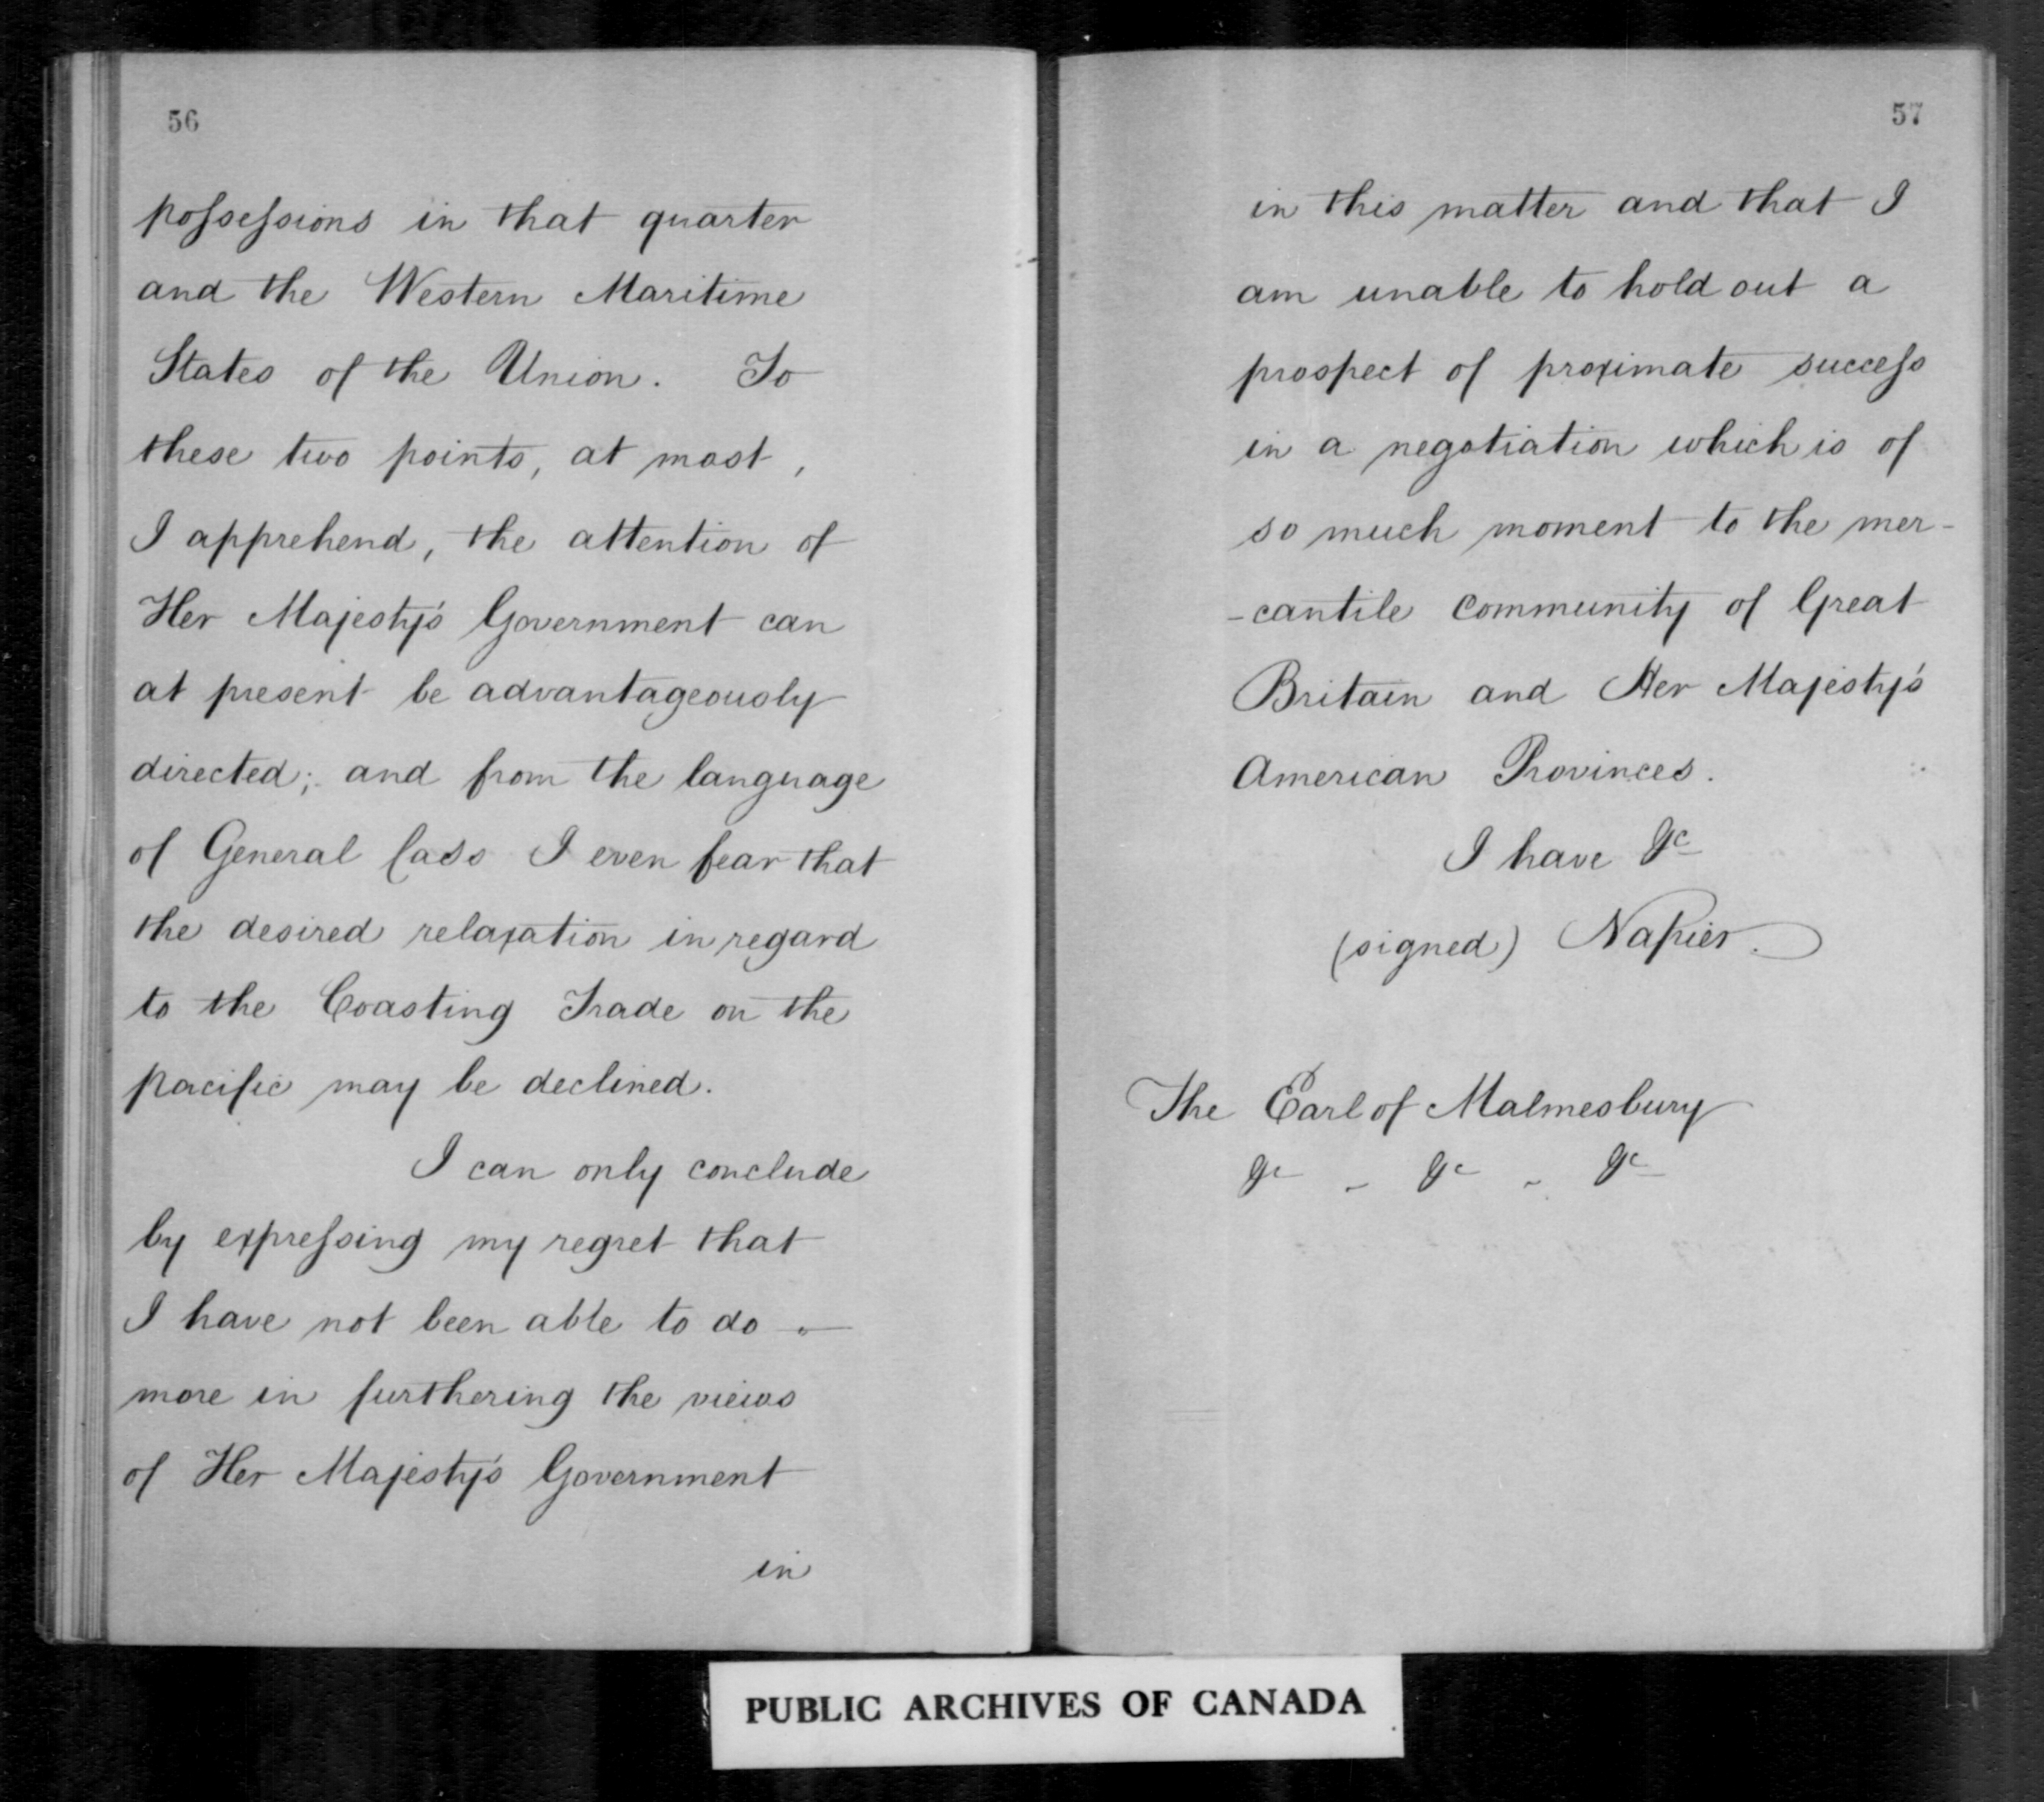 56
possessions in that quarter
and the Western Maritime
States of the Union. To
these two points, at most,
I apprehend, the attention of
Her Majesty's Government can
at present be advantageously
directed; and from the language
of General Cass I even fear that
the desired relaxation in regard
to the Coasting Trade on the
pacific may be declined.
I can only conclude
by expressing my regret that
I have not been able to do
more in furthering the views
of Her Majesty's Government
in
57
in this matter and that I
am unable to hold out a
prospect of proximate success
in a negotiation which is of
so much moment to the mer-
-cantile community of Great
Britain and Her Majesty's
American Provinces.
I have &c
(signed) Napier.
The Earl of Malmesbury
&c - &c - &c
PUBLIC ARCHIVES OF CANADA